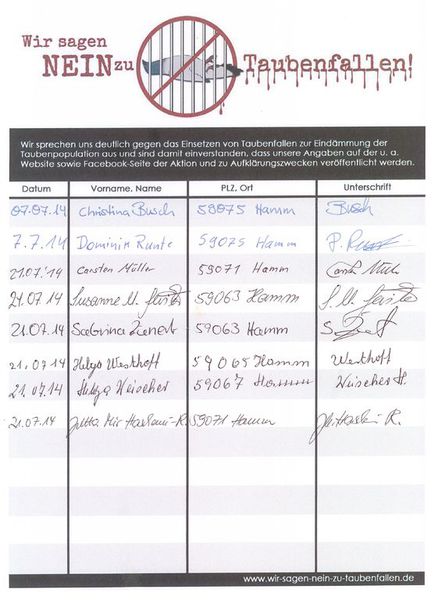 Wir sagen
NEIN zu Taubenfallen!
Wir sprechen uns deutlich gegen das Einsetzen von Taubenfallen zur Eindämmung der
Taubenpopulation aus und sind damit einverstanden, dass unsere Angaben auf der u. a.
Website sowie Facebook-Seite der Aktion und zu Aufklärungszwecken veröffentlicht werden.
Datum Vorname, Name PLZ, Ort Unterschrift
07.07.14 Christina Busch 59075 Hamm Busch
7.7.14 Dominik Runte 59075 Hamm
21.07.'14 Carsten Müller 59071 Hamm
21.07.14 Susanne M. 59063 Hamm S. M.
21.07.14 Sabrina 59063 Hamm
21.07.14 Helga Westhoff 59065 Hamm Westhoff
21.07.14 Weischer 59067 Hamm Weischer H.
21.07.14 Jutta Mir Haschemi-R. 59071 Hamm
www.wir-sagen-nein-zu-taubenfallen.de